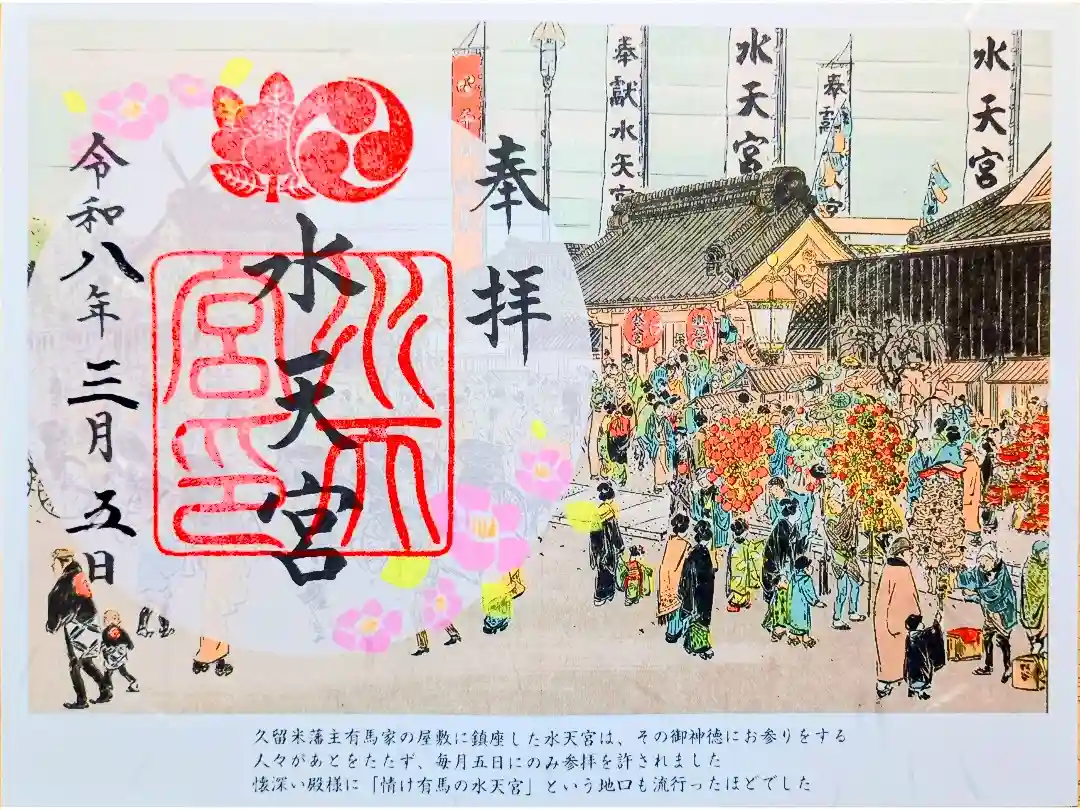 奉献水天宮
水天宮
奉献
水天宮
奉拝
水天宮
水天宮印
令和八年三月五日
水天宮
久留米藩主有馬家の屋敷に鎮座した水天宮は、その御神徳にお参りをする
人々があとをたたず、毎月五日にのみ参拝を許されました
懐深い殿様に「情け有馬の水天宮」という地口も流行ったほどでした